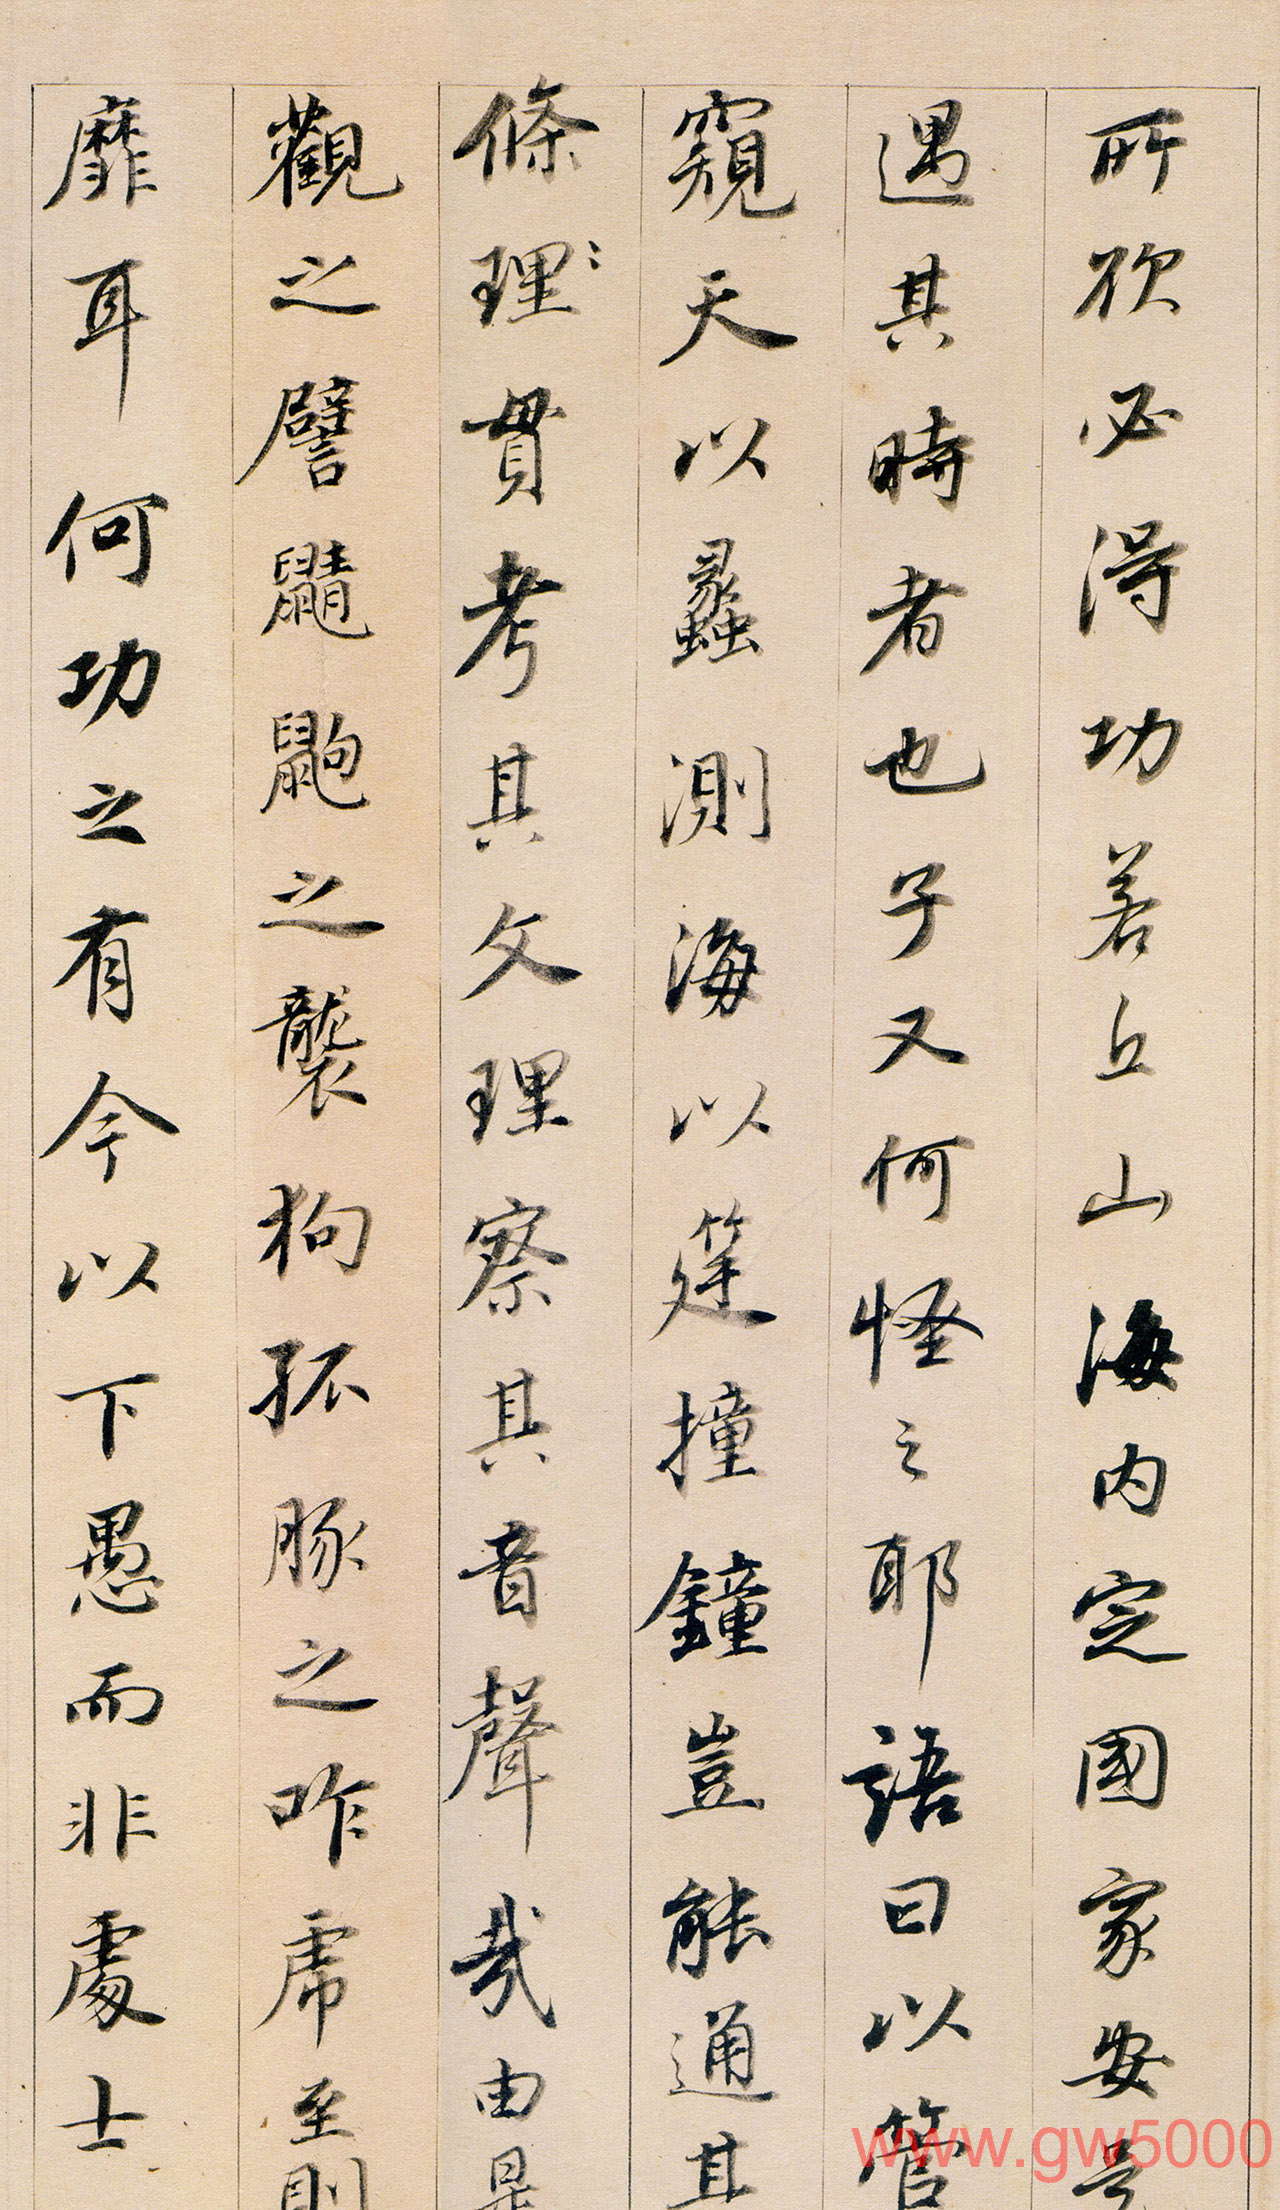 所欲必得功若丘山海内定國家安是
遇其時者也子又何怪之耶語曰以管
窺天以蠡測海以筳撞鐘豈能通其
條理〻貫考其文理察其音聲哉由是
觀之譬鼱鼩之襲狗孤豚之咋虎至則
靡耳何功之有今以下愚而非處士
www.gw5000